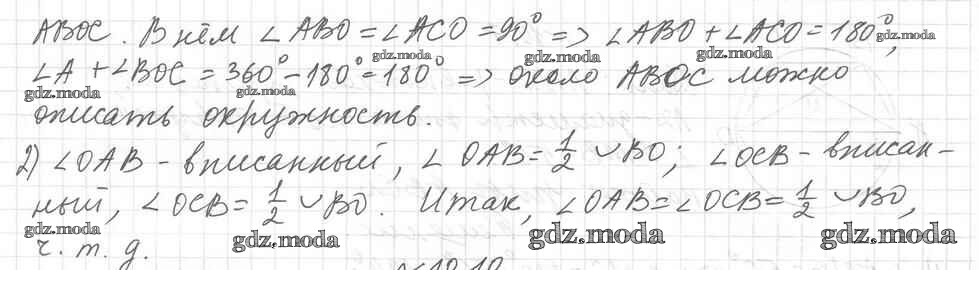 ABOC. В нём ∠ABO = ∠ACO = 90° => ∠ABO + ∠ACO = 180°,
∠A + ∠BOC = 360° - 180° = 180° => около ABOC можно
описать окружность.
2) ∠OAB - вписанный, ∠OAB = 1/2 ∪BO; ∠OCB - вписан-
ный, ∠OCB = 1/2 ∪BO. Итак, ∠OAB = ∠OCB = 1/2 ∪BO,
ч. т. д.
gdz.moda
gdz.moda
gdz.moda
gdz.moda
gdz.moda
gdz.moda
gdz.moda
gdz.moda
gdz.moda
gdz.moda